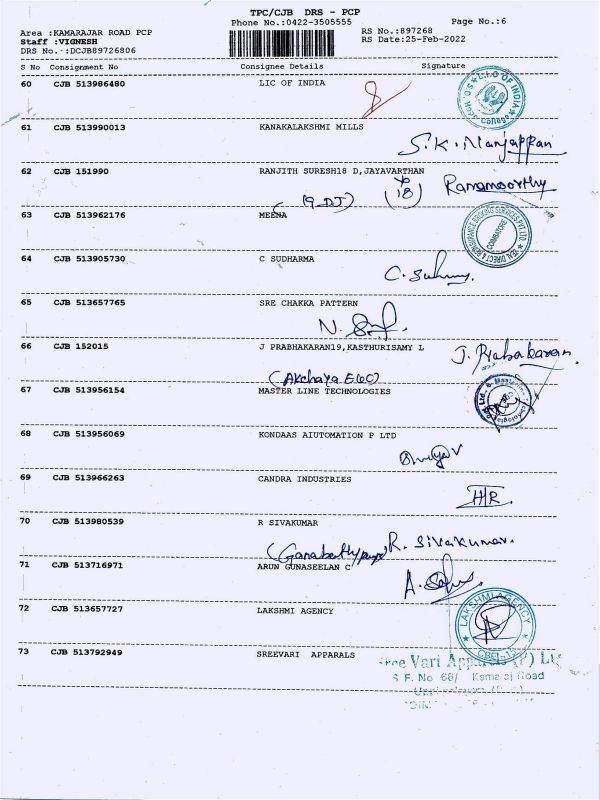 TPC/CJB DRS - PCP
Phone No.:0422-3505555
Page No.:6
Area :KAMARAJAR ROAD PCP
RS No.:897268
Staff :VIGNESH
RS Date:25-Feb-2022
DRS No. :DCJB89726806
S No Consignment No Consignee Details Signature
60 CJB 513986480 LIC OF INDIA
L.I.C OF INDIA
College
61 CJB 513990013 KANAKALAKSHMI MILLS
S.K.Manjappan
62 CJB 151990 RANJITH SURESH18 D,JAYAVARTHAN
(9-DJ) (18) Ramamoorthy
63 CJB 513962176 MEENA
COIMBATORE
64 CJB 513905730 C SUDHARMA
65 CJB 513657765 SRE CHAKKA PATTERN
66 CJB 152015 J PRABHAKARAN19,KASTHURISAMY L
J. Prabakaran
(Akchaya E&C)
67 CJB 513956154 MASTER LINE TECHNOLOGIES
68 CJB 513956069 KONDAAS AIUTOMATION P LTD
69 CJB 513966263 CANDRA INDUSTRIES
70 CJB 513980539 R SIVAKUMAR
R. Sivakumar.
71 CJB 513716971 ARUN GUNASEELAN C
72 CJB 513657727 LAKSHMI AGENCY
LAKSHMI AGENCY
73 CJB 513792949 SREEVARI APPARALS
Sree Vari Apparels (P) Lt
S.F. No. 68/ Kamaraj Road